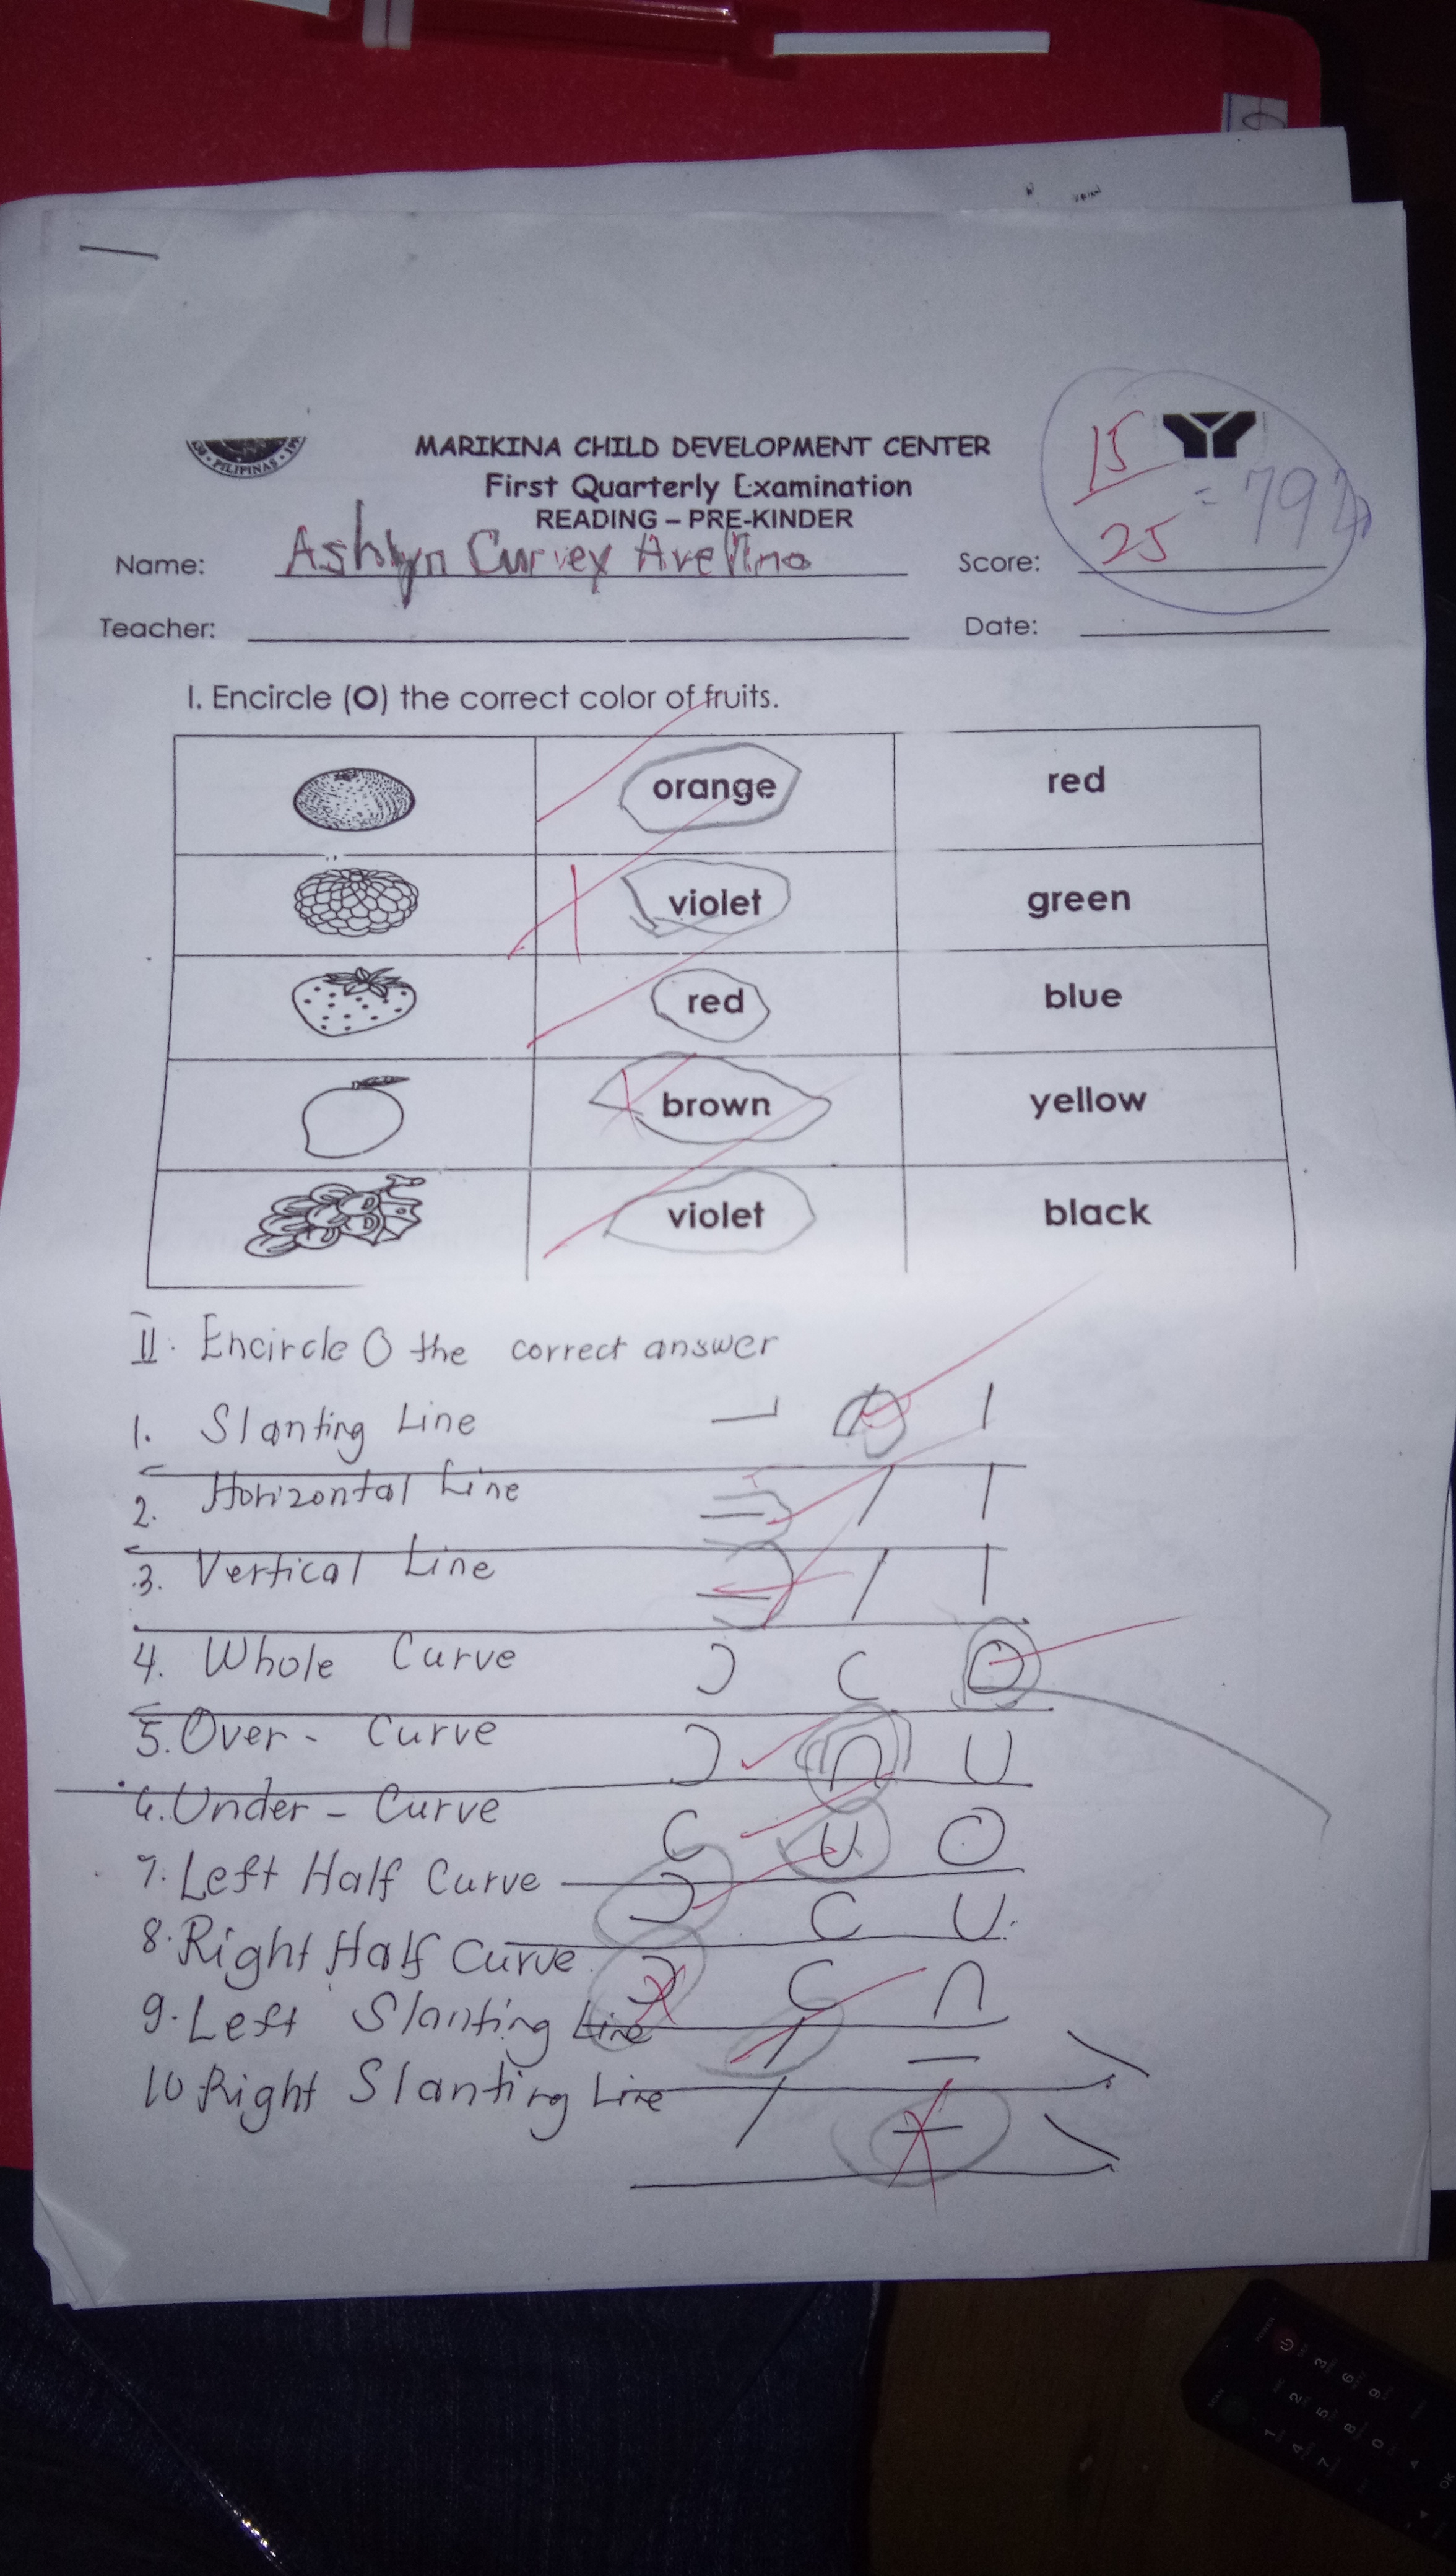 PILIPINAS
MARIKINA CHILD DEVELOPMENT CENTER
First Quarterly Examination
READING – PRE-KINDER
Name: Ashlyn Curvex Avelino Score: 15/25 = 79%
Teacher: Date:
I. Encircle (O) the correct color of fruits.
orange red
violet green
red blue
brown yellow
violet black
II. Encircle O the correct answer
1. Slanting Line
2. Horizontal Line
3. Vertical Line
4. Whole Curve
5. Over - Curve
6. Under - Curve
7. Left Half Curve
8. Right Half Curve
9. Left Slanting Line
10 Right Slanting Line